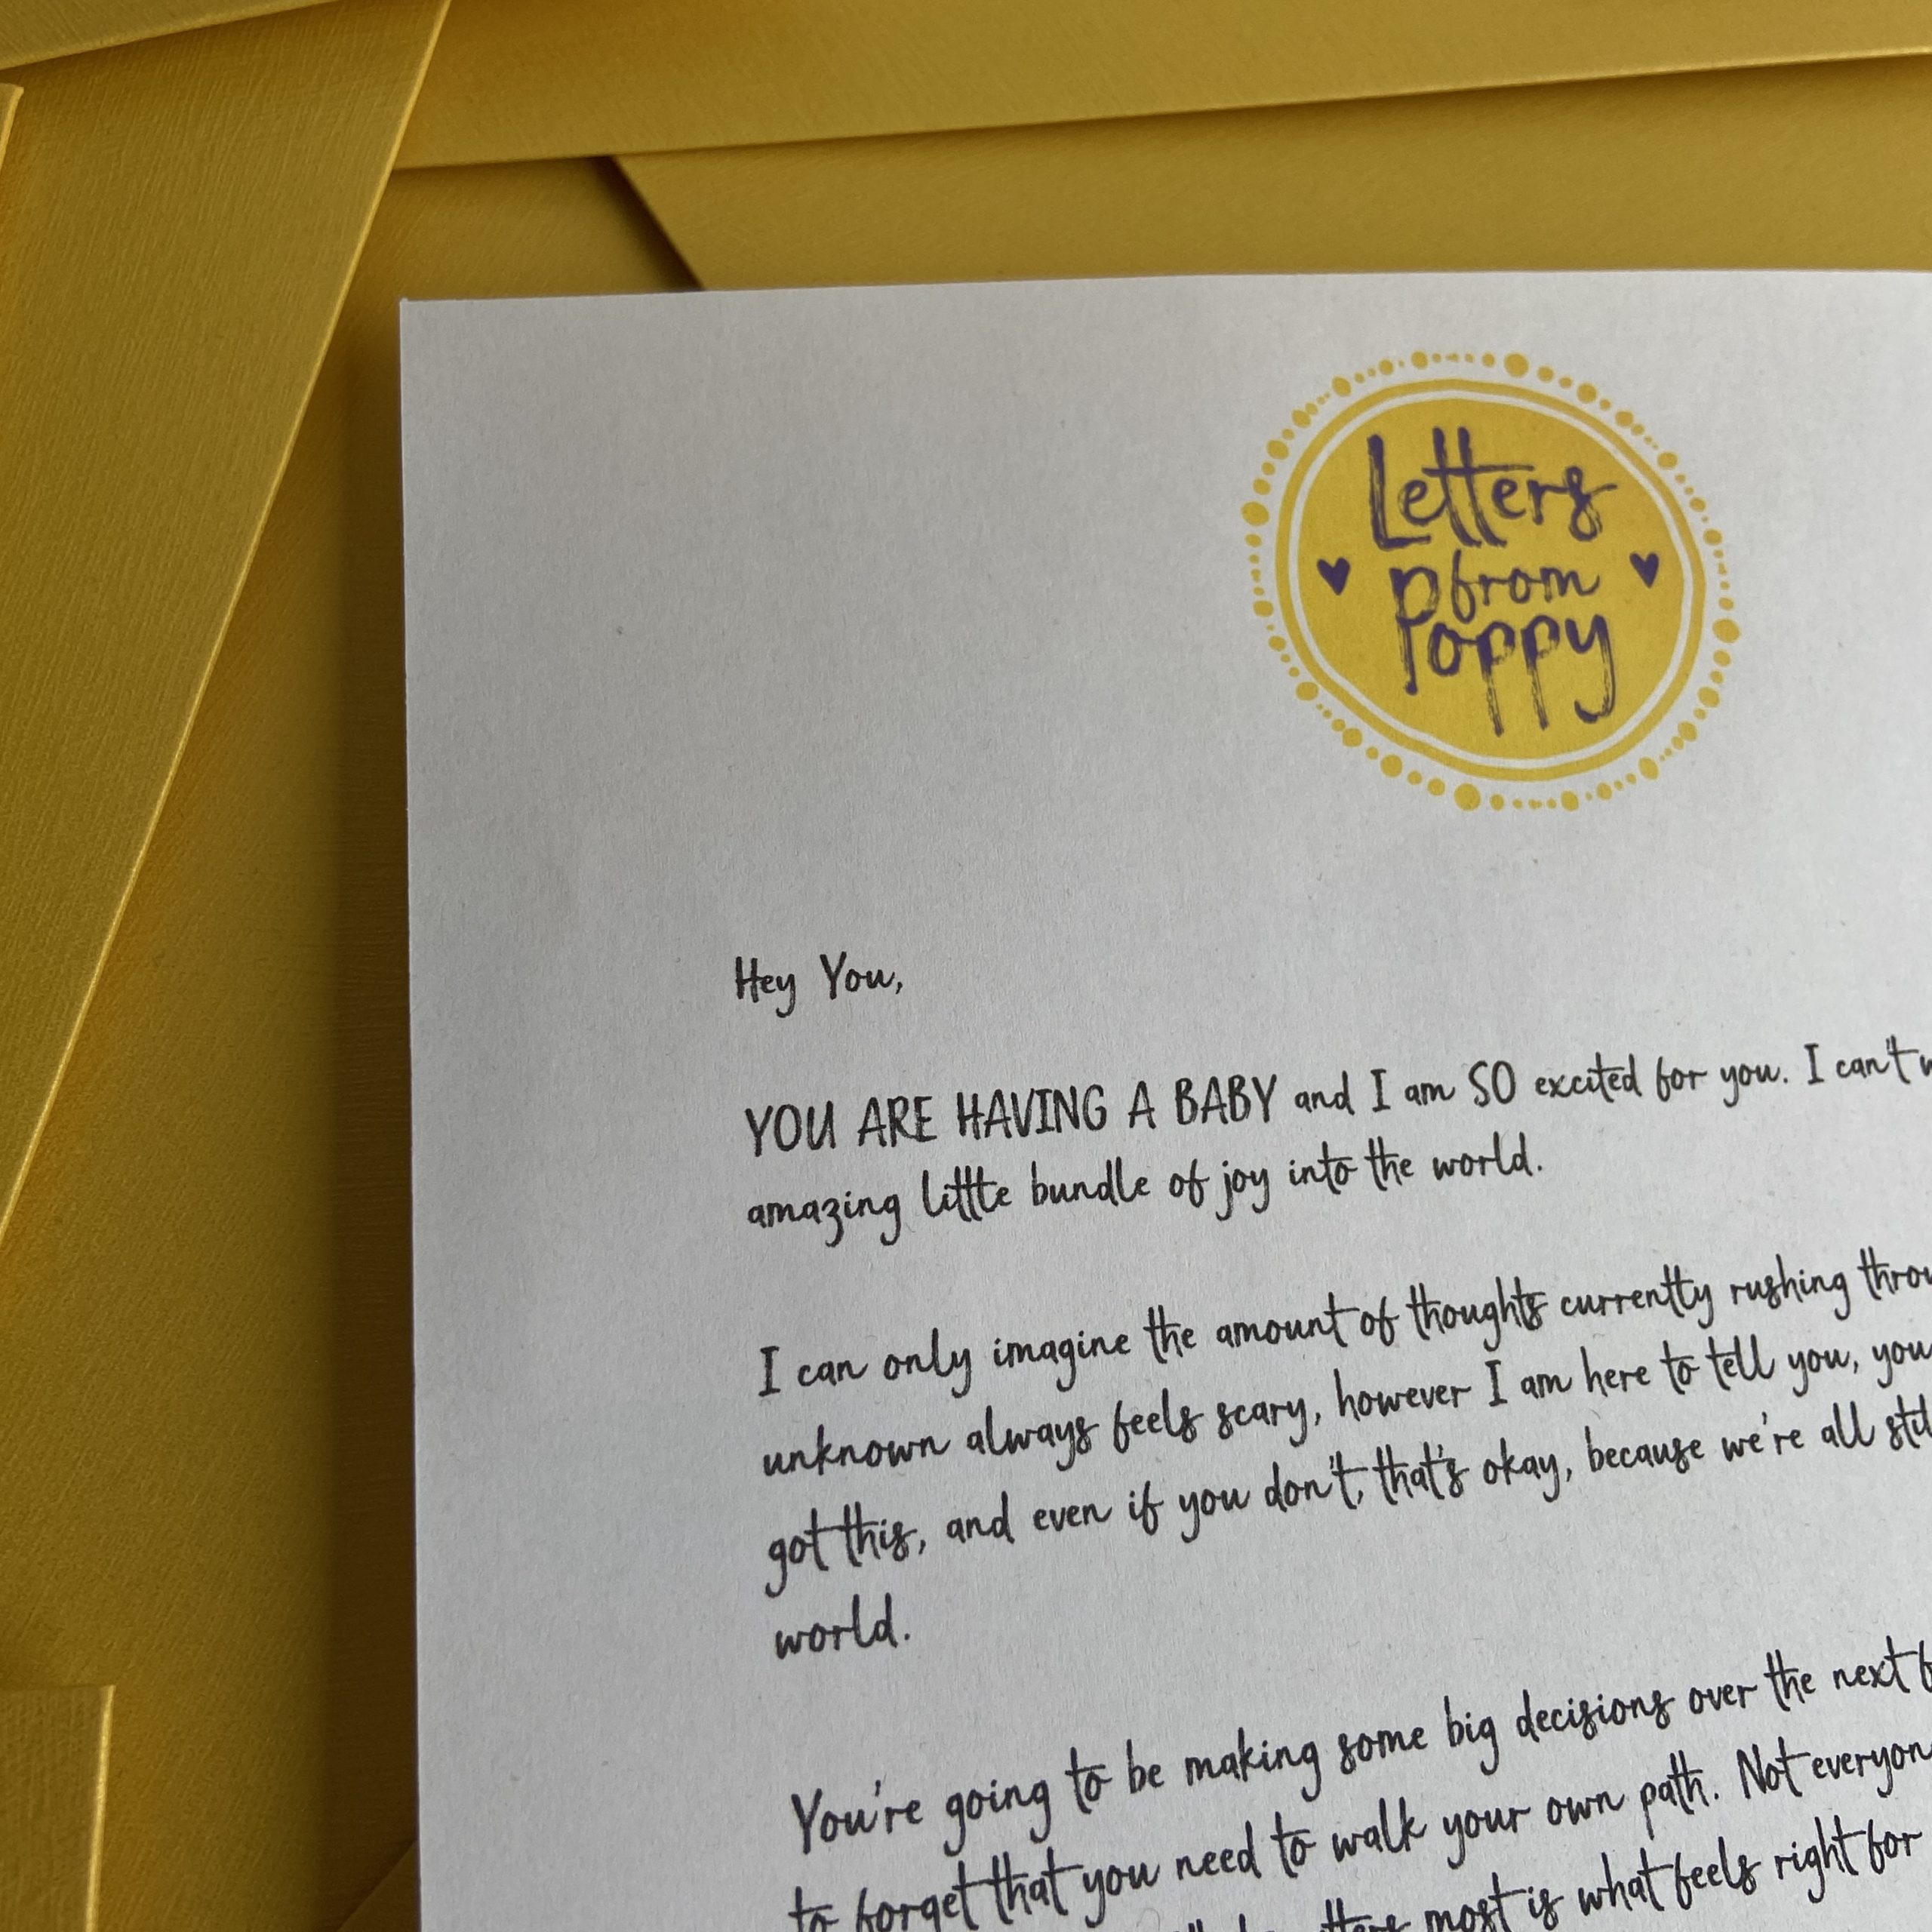 Letters
from
Poppy
Hey You,
YOU ARE HAVING A BABY and I am SO excited for you. I can't
amazing little bundle of joy into the world.
I can only imagine the amount of thoughts currently rushing
unknown always feels scary, however I am here to tell you, you
got this, and even if you don't, that's okay, because we're all
world.
You're going to be making some big decisions over the next
to forget that you need to walk your own path. Not
most is what feels right for